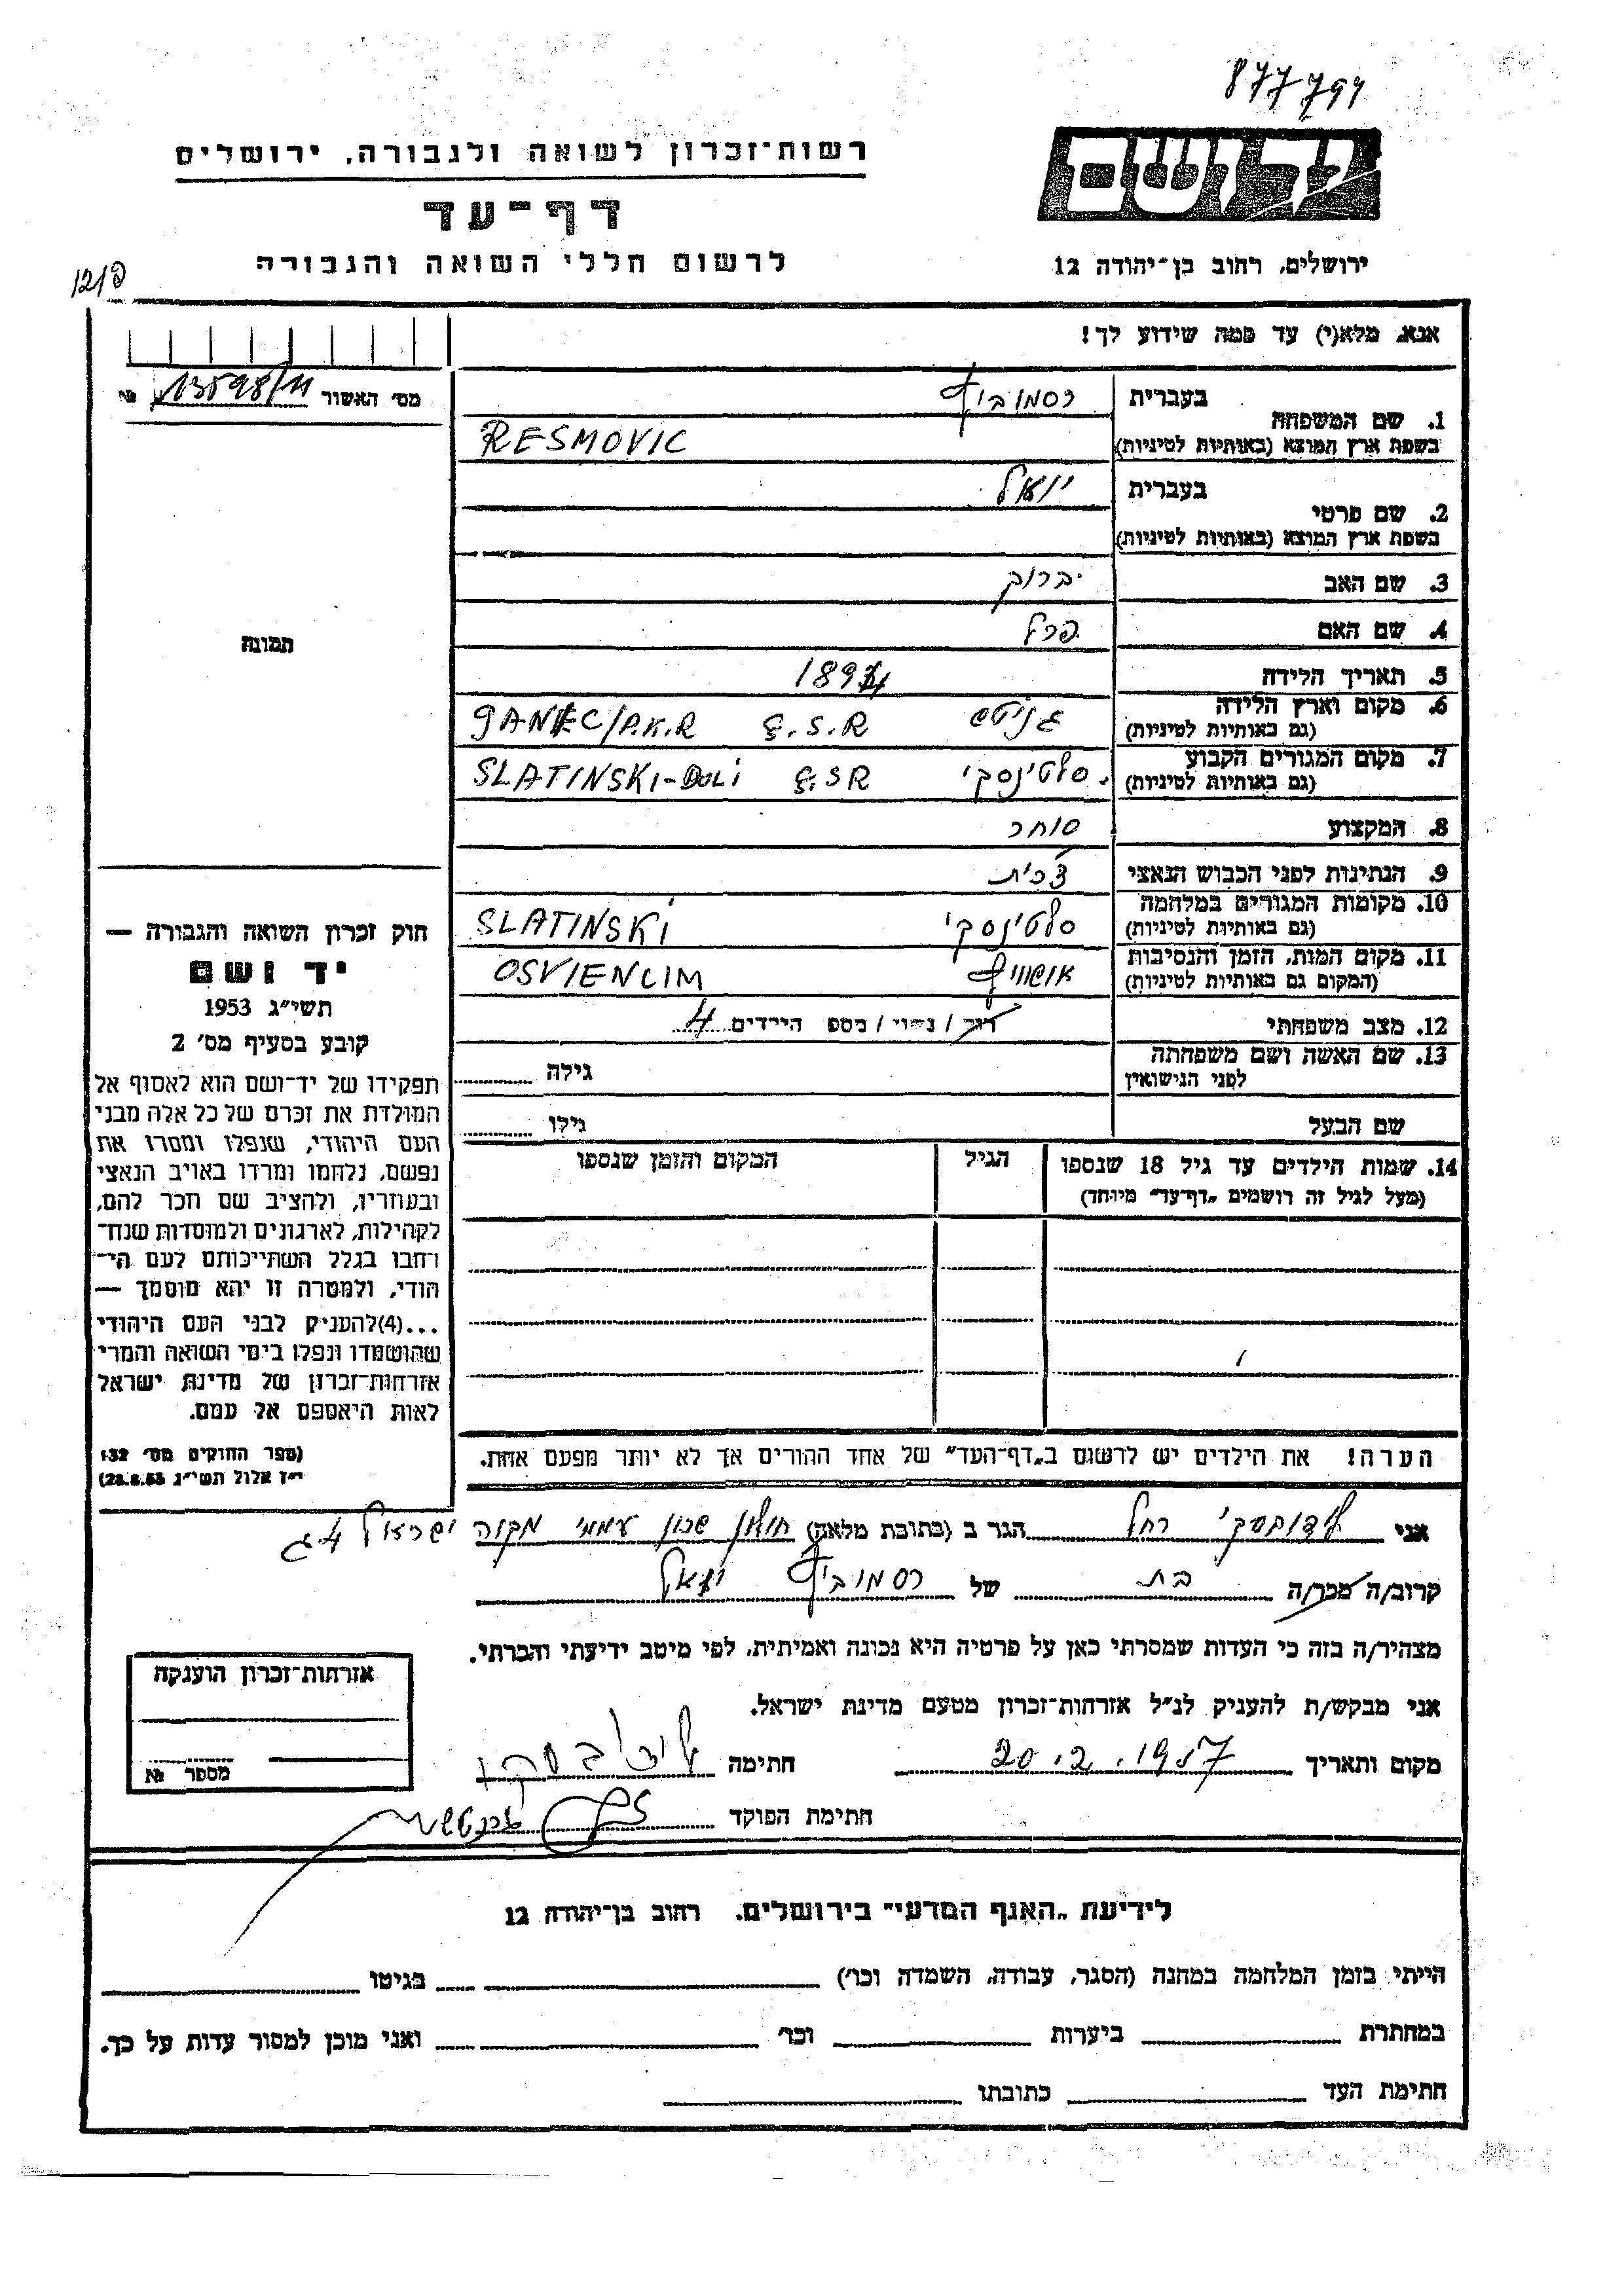 877794
רשות־זכרון לשואה ולגבורה, ירושלים
יד ושם
דף־עד
לרשום חללי השואה והגבורה
ירושלים, רחוב בן־יהודה 12
אנא, מלא(י) עד כמה שידוע לך!
מס' האשור 13598/11 №
1. שם המשפחה
בעברית רסמוביץ
בשפת ארץ המוצא (באותיות לטיניות) RESMOVIC
2. שם פרטי
בעברית יואל
בשפת ארץ המוצא (באותיות לטיניות)
3. שם האב ברוך
4. שם האם פרל
תמונה
5. תאריך הלידה
6. מקום וארץ הלידה
(גם באותיות לטיניות) /P.K.R Č.S.R
7. מקום המגורים הקבוע
(גם באותיות לטיניות) סלטינסקי SLATINSKI-DOLI Č.SR
8. המקצוע סוחר
9. הנתינות לפני הכבוש הנאצי צ'כית
10. מקומות המגורים במלחמה
(גם באותיות לטיניות) סלטינסקי SLATINSKI
11. מקום המות, הזמן והנסיבות
(המקום גם באותיות לטיניות) אושוויץ OSVIENCIM
12. מצב משפחתי רוק / נשוי / מספ הילדים 4
13. שם האשה ושם משפחתה
לפני הנישואין גילה
שם הבעל גילו
14. שמות הילדים עד גיל 18 שנספו הגיל המקום והזמן שנספו
(מעל לגיל זה רושמים "דף־עד" מיוחד)
הערה! את הילדים יש לרשום ב"דף־העד" של אחד ההורים אך לא יותר מפעם אחת.
חוק זכרון השואה והגבורה —
יד ושם
תשי"ג 1953
קובע בסעיף מס' 2
תפקידו של יד־ושם הוא לאסוף אל
המולדת את זכרם של כל אלה מבני
העם היהודי, שנפלו ומסרו את
נפשם, נלחמו ומרדו באויב הנאצי
ובעוזריו, ולהציב שם וזכר להם,
לקהילות, לארגונים ולמוסדות שנח־
רבו בגלל השתייכותם לעם הי־
הודי, ולמטרה זו יהא מוסמך —
...(4)להעניק לבני העם היהודי
שהושמדו ונפלו בימי השואה והמרי
אזרחות־זכרון של מדינת ישראל
לאות היאספם אל עמם.
(ספר החוקים מס' 132
י"ז אלול תשי"ג 28.8.53)
אני רחל הגר ב (כתובת מלאה) חולון שכון עממי מקוה ישראל 4 ג
קרוב/ה מכר/ה בת של רסמוביץ יואל
מצהיר/ה בזה כי העדות שמסרתי כאן על פרטיה היא נכונה ואמיתית, לפי מיטב ידיעתי והכרתי.
אני מבקש/ת להעניק לנ"ל אזרחות־זכרון מטעם מדינת ישראל.
מקום ותאריך 20.2.1957 חתימה
חתימת הפוקד
אזרחות־זכרון הוענקה
מספר №
לידיעת "האגף המדעי" בירושלים, רחוב בן־יהודה 12
הייתי בזמן המלחמה במחנה (הסגר, עבודה, השמדה וכו') בגיטו
במחתרת ביערות וכו' ואני מוכן למסור עדות על כך.
חתימת העד כתובתו